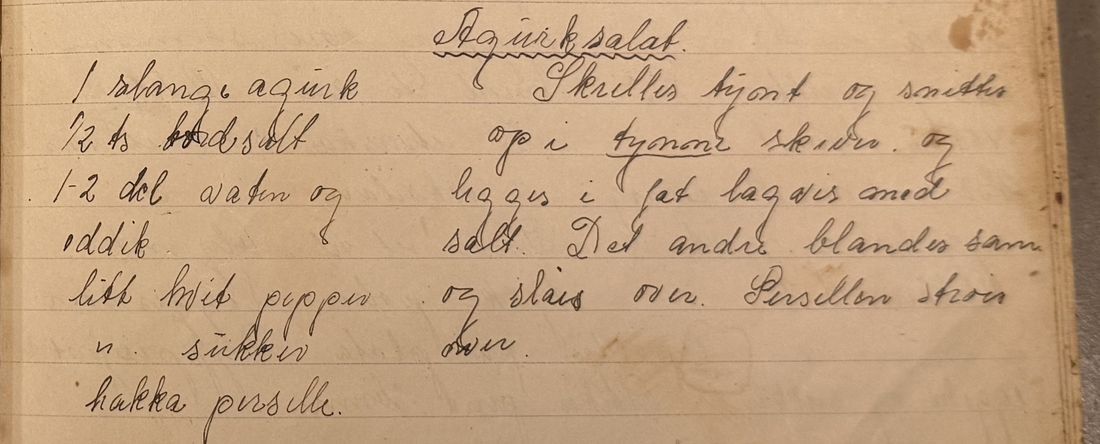 Agurksalat.
1 slange agurk
1/2 ts bordsalt
1-2 del vaten og
eddik.
litt hvit pepper
" sukker
hakka persille.
Skrelles tynnt og snittes
op i tynne skiver. og
legges i fat lagvis med
salt. Det andre blandes sam
og slåes over. Persillen strøes
over.